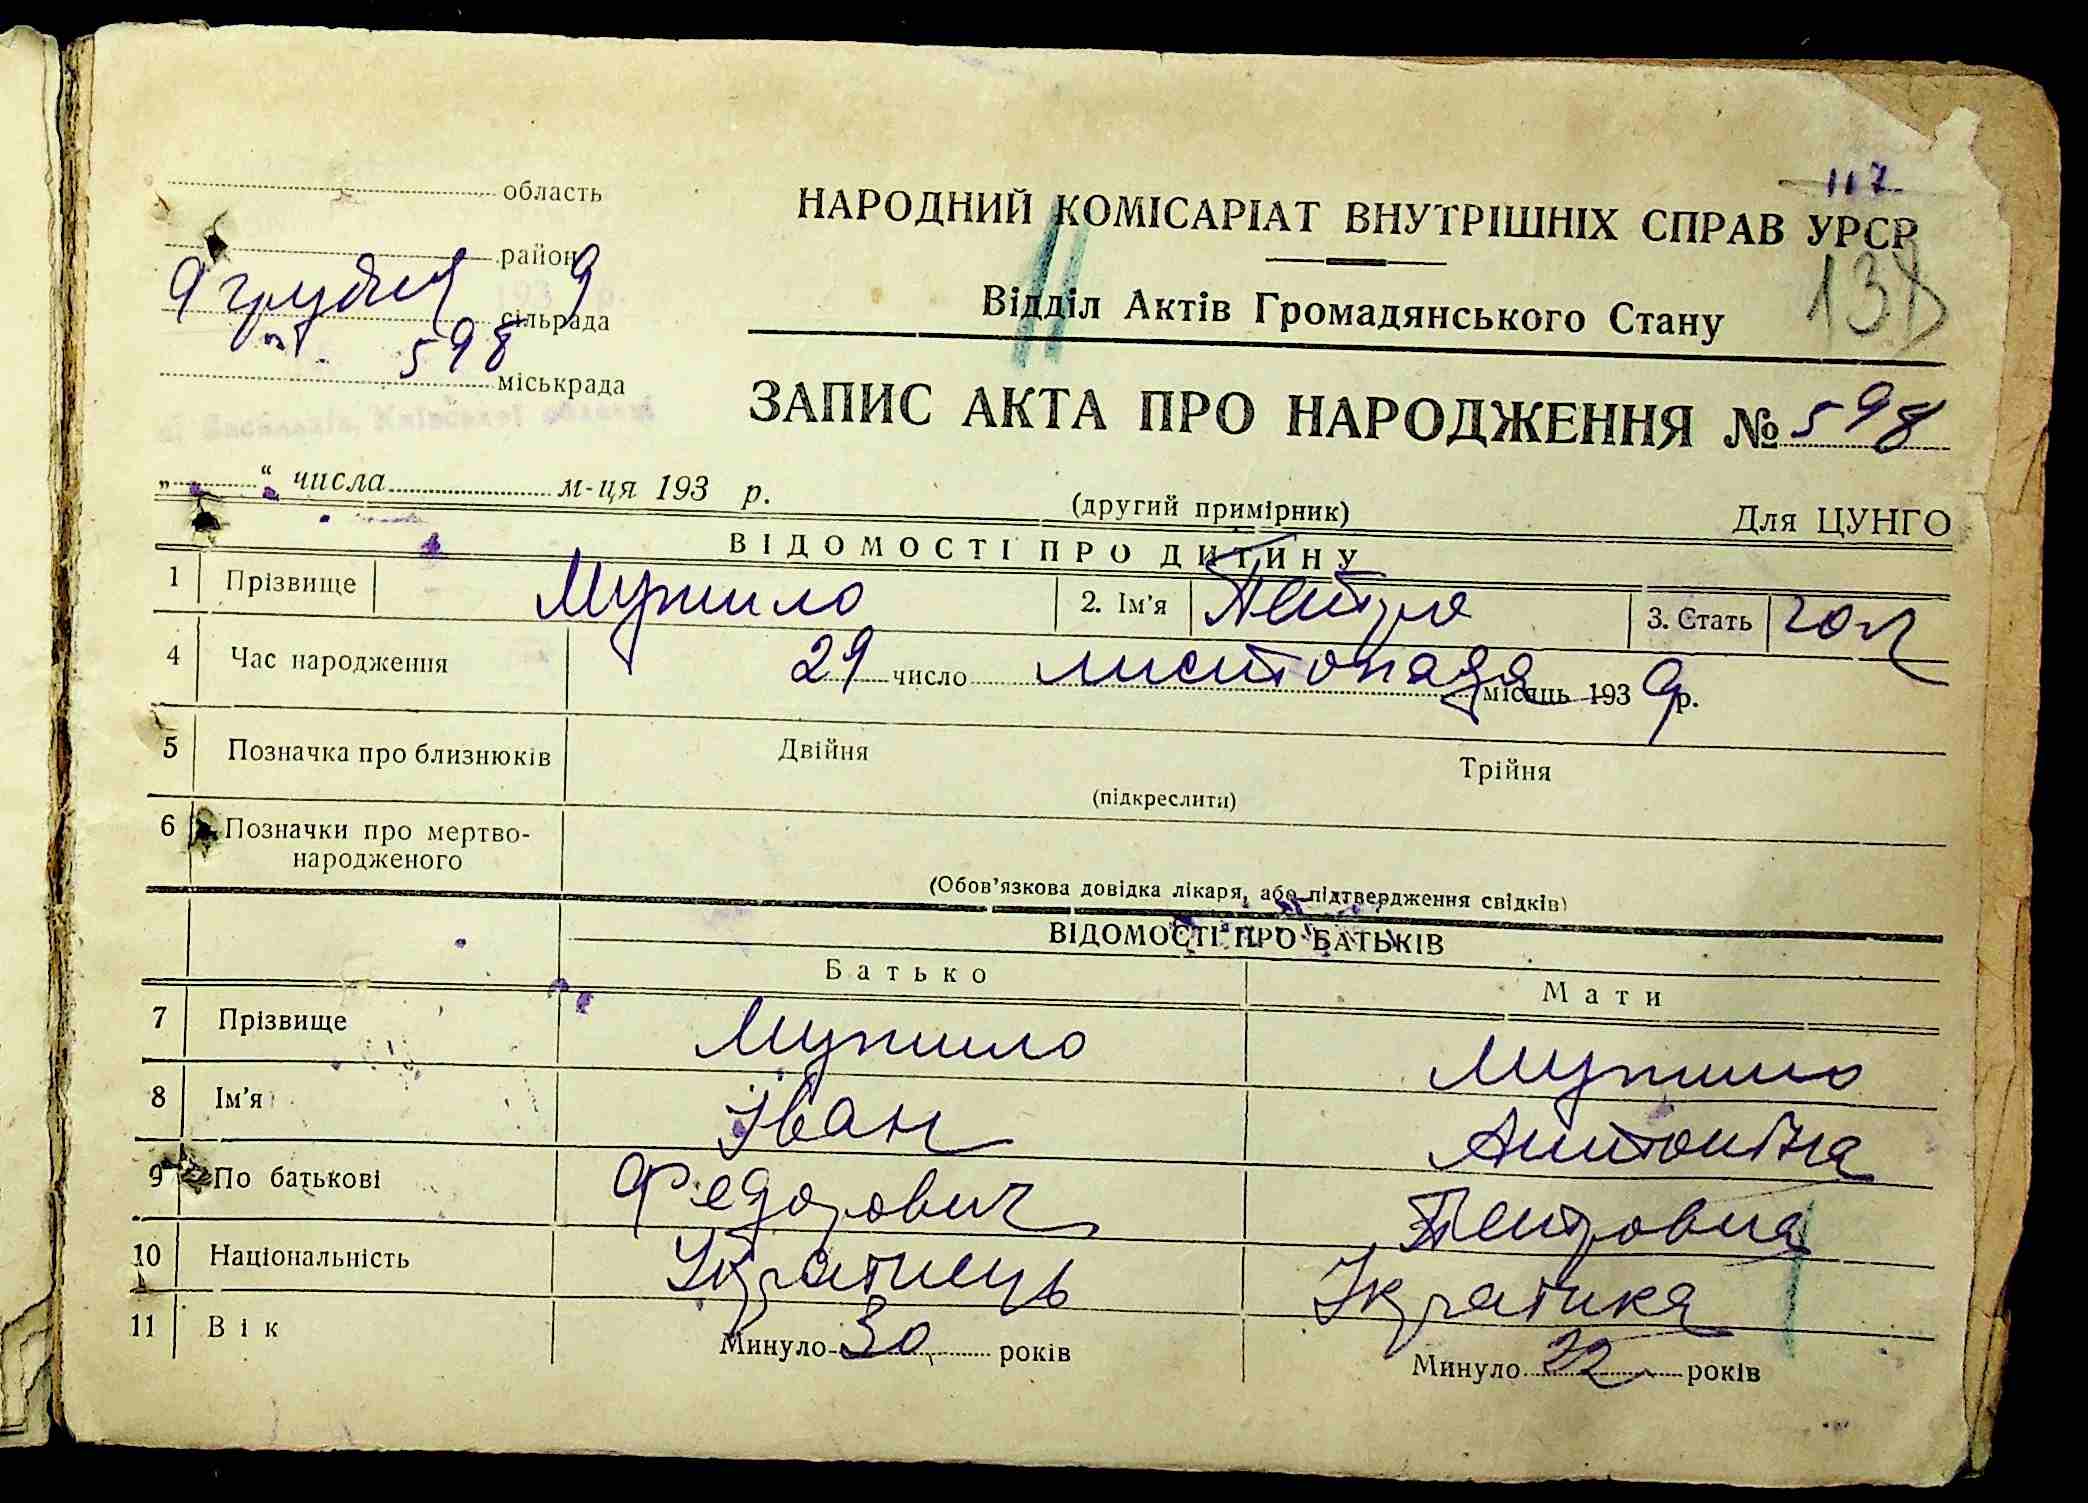 117
область
НАРОДНИЙ КОМІСАРІАТ ВНУТРІШНІХ СПРАВ УРСР
район
9 грудня 9
сільрада
138
Відділ Актів Громадянського Стану
598
міськрада
ЗАПИС АКТА ПРО НАРОДЖЕННЯ № 598
„ “ числа м-ця 193 р.
(другий примірник)
Для ЦУНГО
ВІДОМОСТІ ПРО ДИТИНУ
1 Прізвище Мужило 2. Ім'я Петро 3. Стать чол
4 Час народження 29 число листопада місяць 1939 р.
5 Позначка про близнюків Двійня Трійня
(підкреслити)
6 Позначки про мертво-
народженого
(Обов'язкова довідка лікаря, або підтвердження свідків)
ВІДОМОСТІ ПРО БАТЬКІВ
Батько Мати
7 Прізвище Мужило Мужило
8 Ім'я Іван Антоніна
9 По батькові Федорович Петровна
10 Національність Українець Українка
11 Вік Минуло 30 років Минуло 22 років